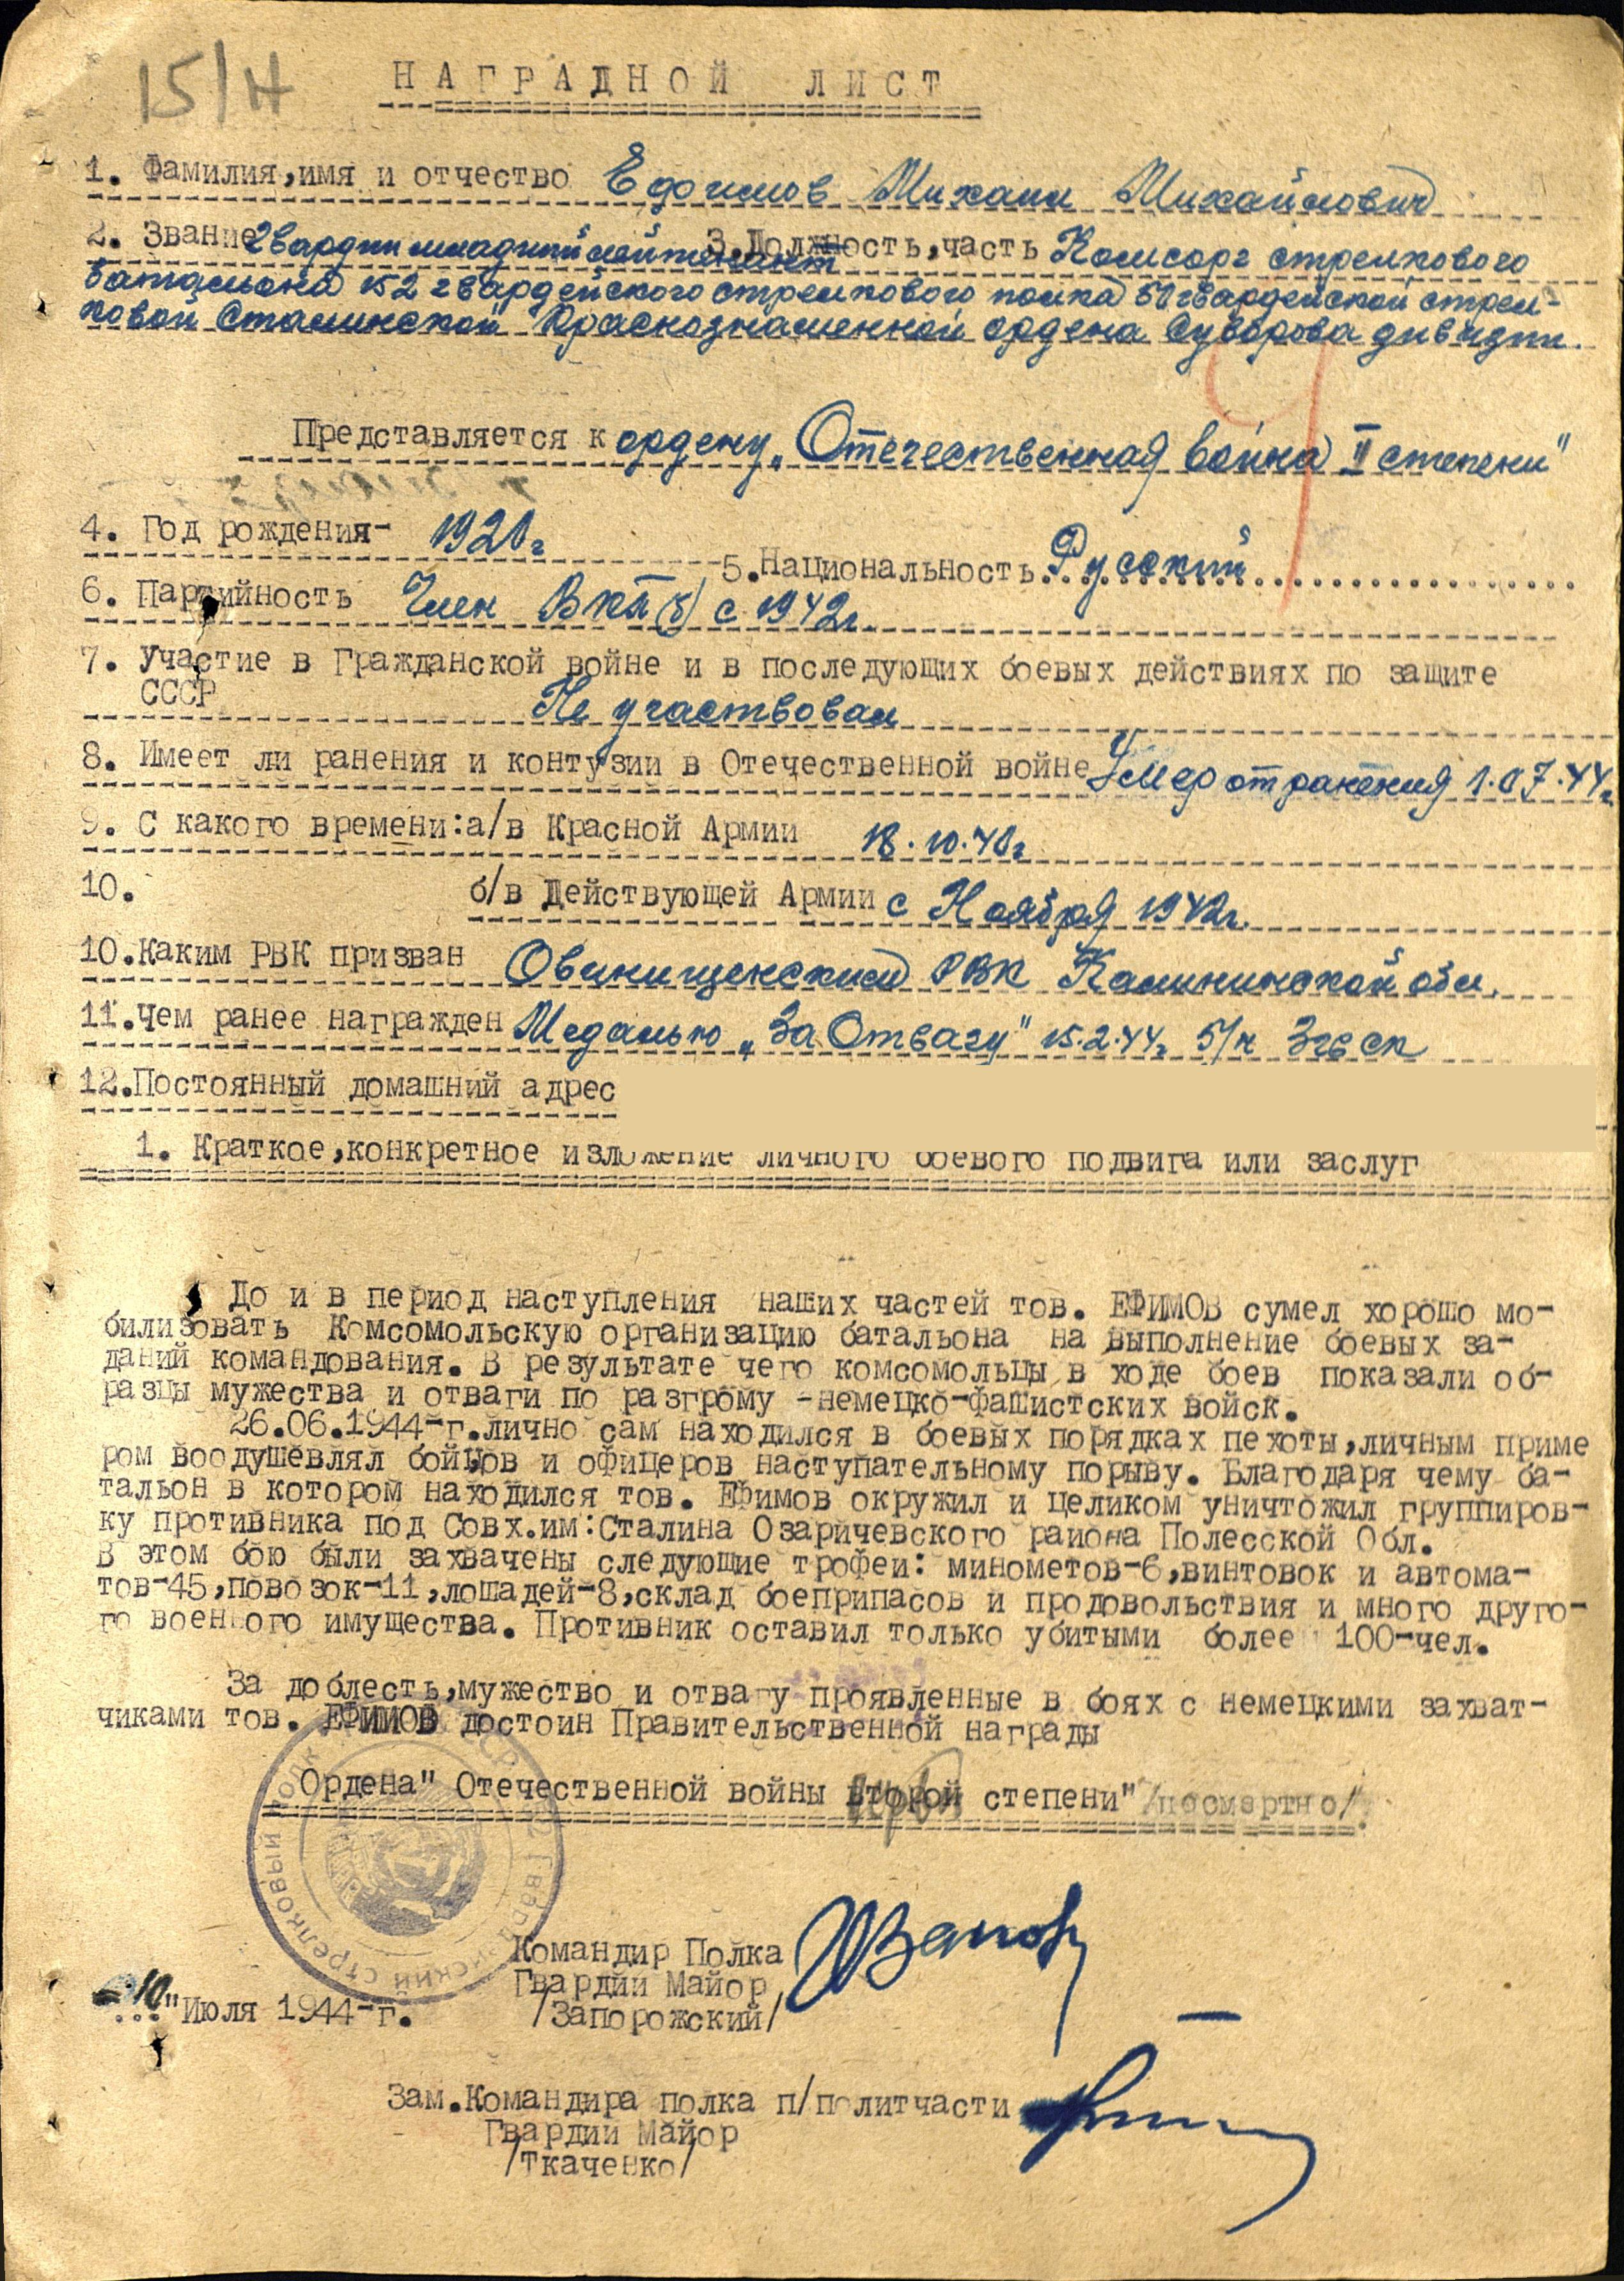 15/н
НАГРАДНОЙ ЛИСТ
1. Фамилия,имя и отчество Ефимов Михаил Михайлович
2. Звание Гвардии младший лейтенант 3.Должность,часть Комсорг стрелкового
батальона 152 гвардейского стрелкового полка 50 гвардейской стрел-
ковой Сталинской Краснознаменной ордена Суворова дивизии.
Представляется к ордену „Отечественная война II степени"
4. Год рождения- 1920г
5.Национальность Русский
6. Партийность Член ВКП(б) с 1942г.
7. Участие в Гражданской войне и в последующих боевых действиях по защите
СССР Не участвовал
8. Имеет ли ранения и контузии в Отечественной войне Умер от ранения 1.07.44г
9. С какого времени:а/в Красной Армии 18.10.40г
10. б/в Действующей Армии с Ноября 1942г.
10.Каким РВК призван Овинищенским РВК Калининской обл.
11.Чем ранее награжден Медалью „За Отвагу" 15.2.44г 5/н 3гв ск
12.Постоянный домашний адрес
1. Краткое,конкретное изложение личного боевого подвига или заслуг
До и в период наступления наших частей тов. ЕФИМОВ сумел хорошо мо-
билизовать Комсомольскую организацию батальона на выполнение боевых за-
даний командования. В результате чего комсомольцы в ходе боев показали об-
разцы мужества и отваги по разгрому -немецко-фашистских войск.
26.06.1944-г.лично сам находился в боевых порядках пехоты,личным приме
ром воодушевлял бойцов и офицеров наступательному порыву. Благодаря чему ба-
тальон в котором находился тов. Ефимов окружил и целиком уничтожил группиров-
ку противника под Совх.им:Сталина Озаричевского района Полесской Обл.
В этом бою были захвачены следующие трофеи: минометов-6,винтовок и автома-
тов-45,повозок-11,лошадей-8,склад боеприпасов и продовольствия и много друго-
го военного имущества. Противник оставил только убитыми более 100-чел.
За доблесть,мужество и отвагу проявленные в боях с немецкими захват-
чиками тов. ЕФИМОВ достоин Правительственной награды
Ордена" Отечественной войны второй степени" /посмертно/
Командир Полка
Гвардии Майор
/Запорожский/
10"Июля 1944-г.
Зам.Командира полка п/политчасти
Гвардии Майор
/Ткаченко/